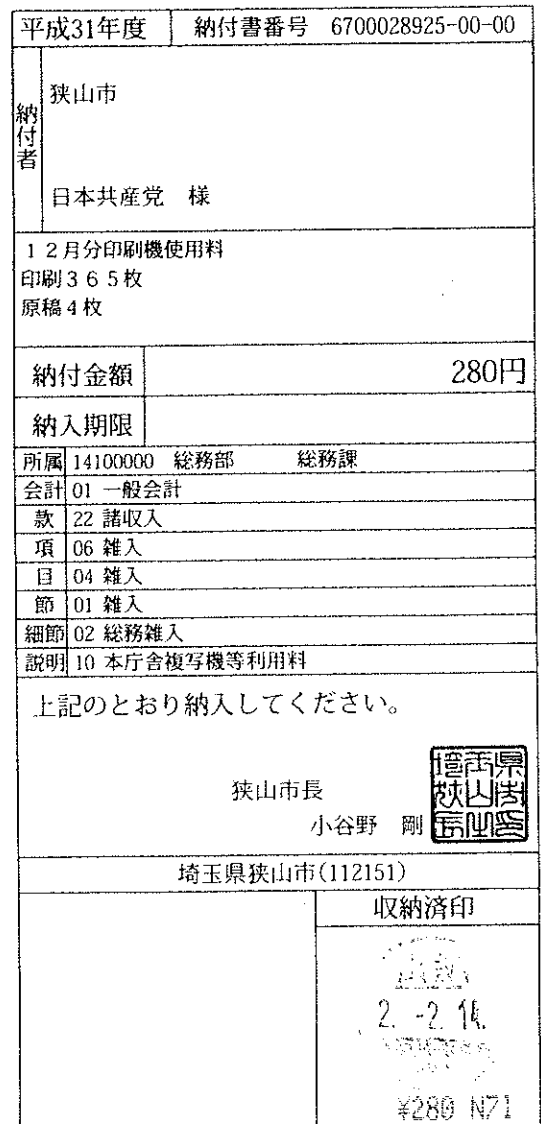 平成31年度 納付書番号 6700028925-00-00
納付者
狭山市
日本共産党 様
12月分印刷機使用料
印刷365枚
原稿4枚
納付金額 280円
納入期限
所属 14100000 総務部 総務課
会計 01 一般会計
款 22 諸収入
項 06 雑入
目 04 雑入
節 01 雑入
細節 02 総務雑入
説明 10 本庁舎複写機等利用料
上記のとおり納入してください。
狭山市長
小谷野 剛
埼玉県狭山市(112151)
収納済印
2. -2. 14.
¥280 N71